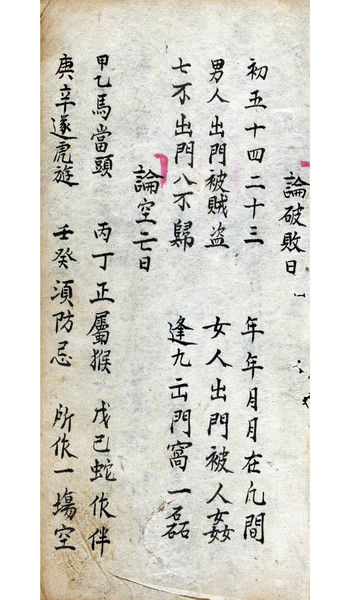 論破敗日
初五十四二十三 年年月月在凢間
男人出門被賊盗 女人出門被人姦
七不出門八不歸 逢九出門窩一磊
論空亡日
甲乙馬當頭 丙丁正屬猴 戊己蛇作伴
庚辛遂虎遊 壬癸須防忌 所作一塲空